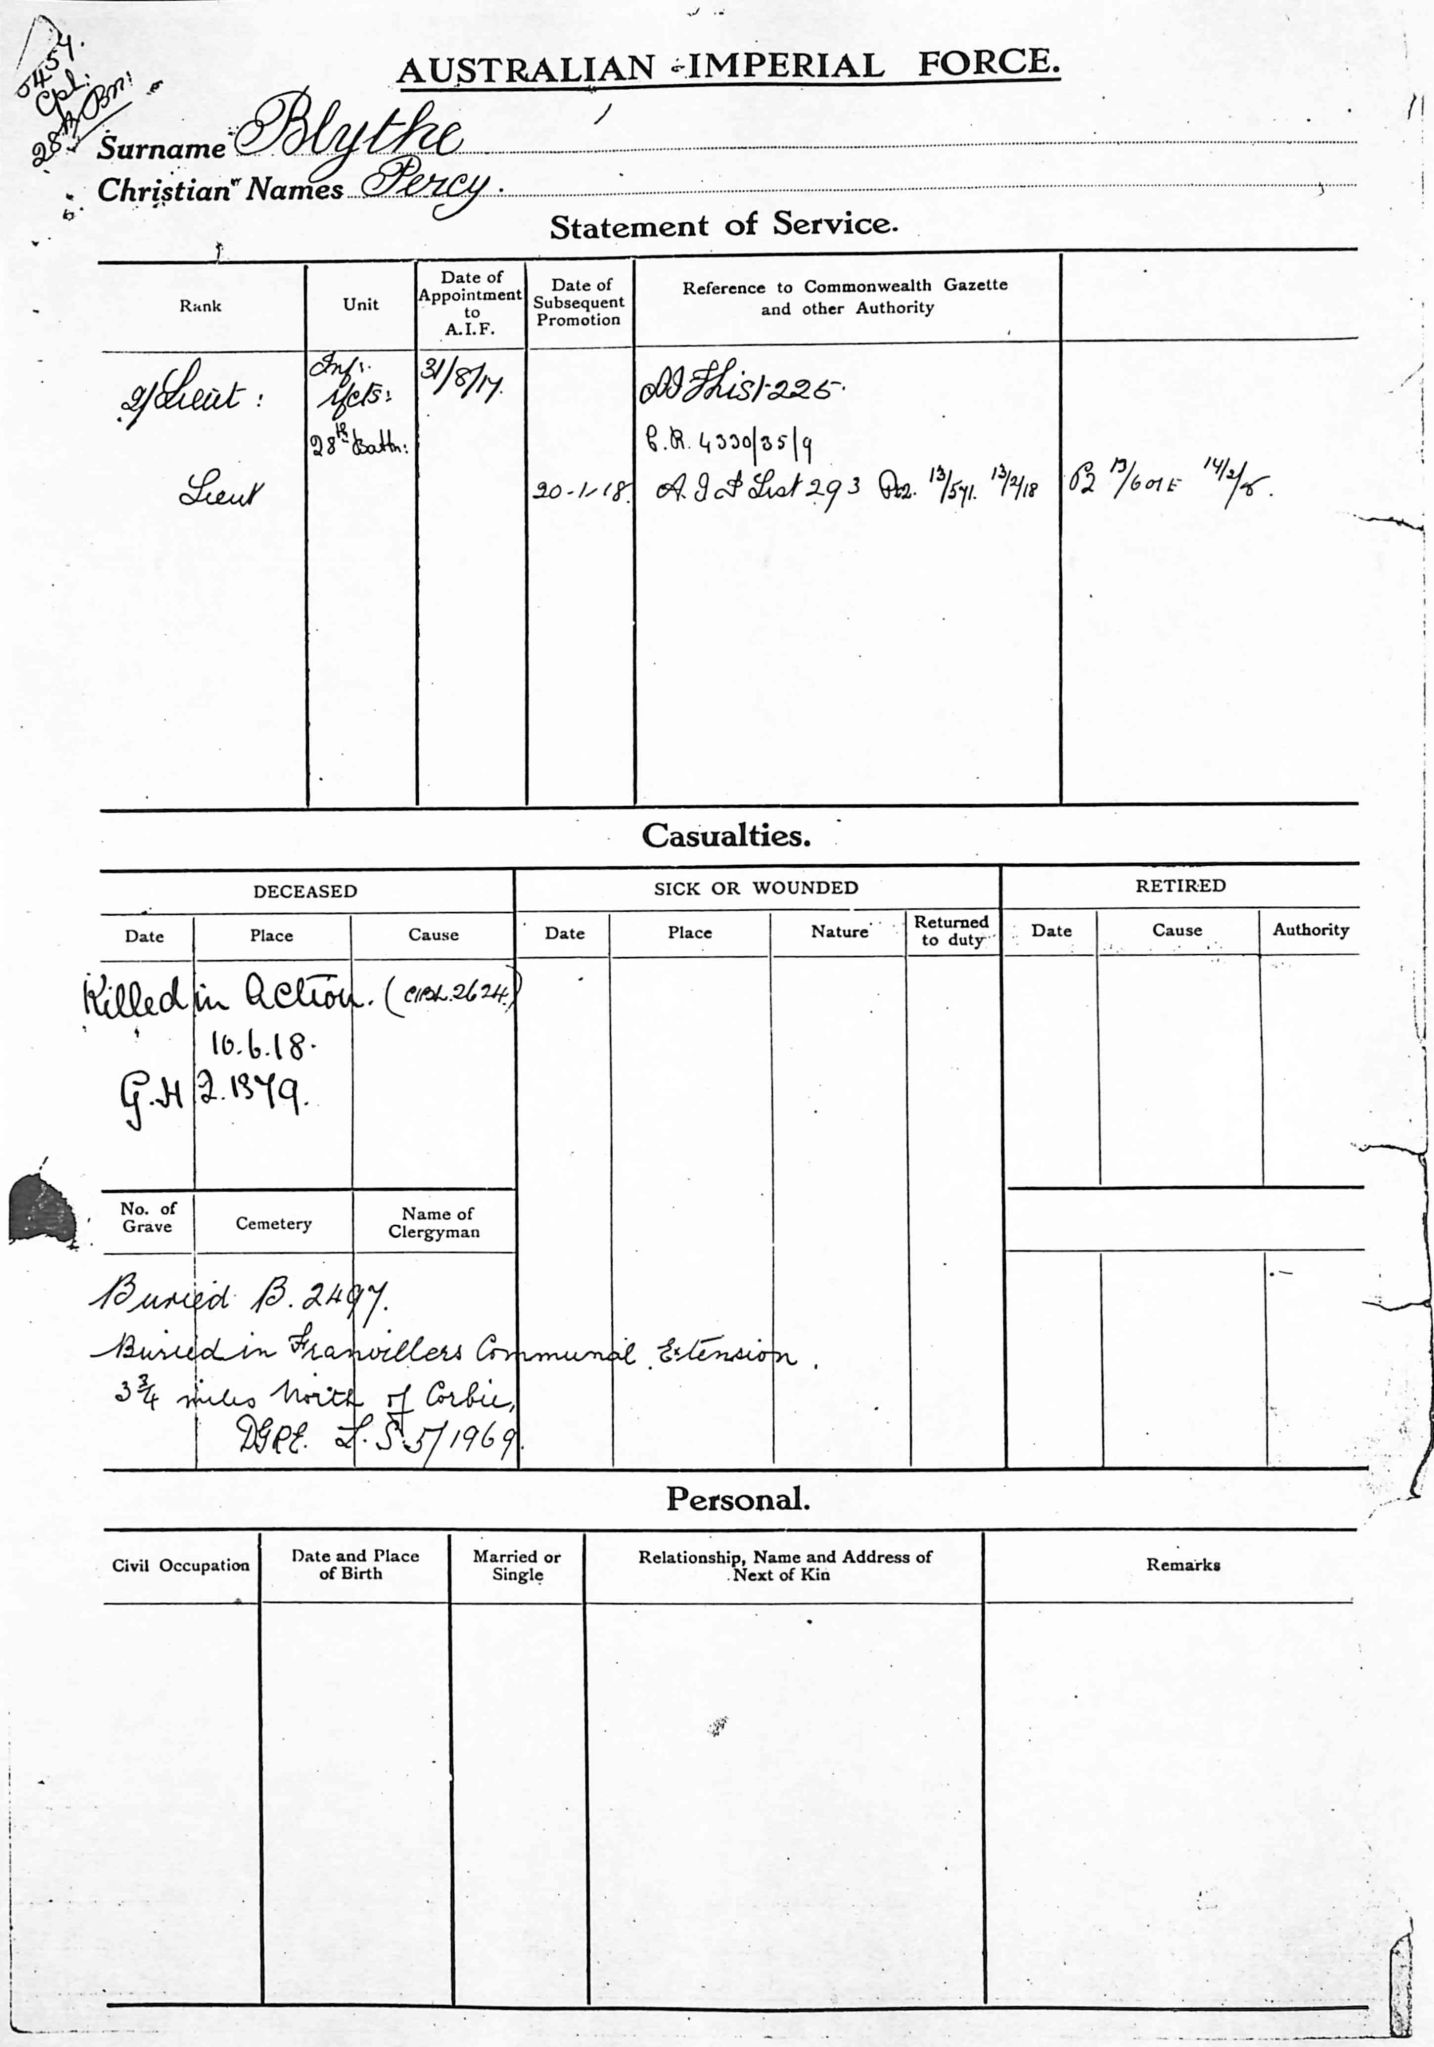 5457.
Cpl.
28th Bn.
AUSTRALIAN IMPERIAL FORCE.
Surname Blythe
Christian Names Percy.
Statement of Service.
Rank
Unit
Date of Appointment to A.I.F.
Date of Subsequent Promotion
Reference to Commonwealth Gazette and other Authority
2/Lieut: Inf: 31/8/17. AIF List 225.
rfcts:
28th Battn: C.R. 4330/35/9
Lieut 20-1-18. A.I.F List 293 13/571. 13/2/18 14/2/8.
Casualties.
DECEASED
SICK OR WOUNDED
RETIRED
Date Place Cause Date Place Nature Returned to duty Date Cause Authority
Killed in Action. (2624.)
10.6.18.
G.H 2.1379.
No. of Grave Cemetery Name of Clergyman
Buried B. 2497.
Buried in Franvillers Communal Extension.
3 3/4 miles North of Corbie,
DGRE. L.S 5/1969.
Personal.
Civil Occupation
Date and Place of Birth
Married or Single
Relationship, Name and Address of Next of Kin
Remarks